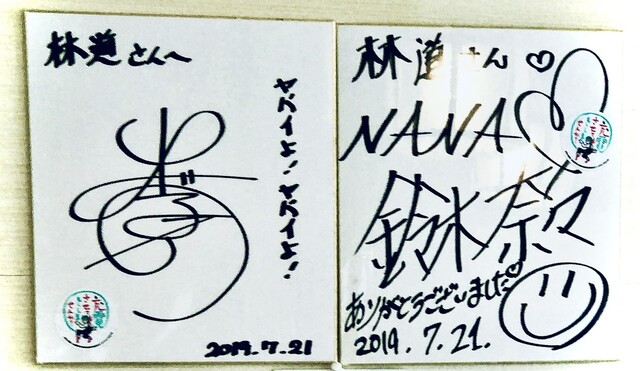 林道さんへ
ヤバイよ!ヤバイよ!
2019.7.21
林道さん♡
NANA
鈴木奈々
ありがとうございました
2019.7.21.